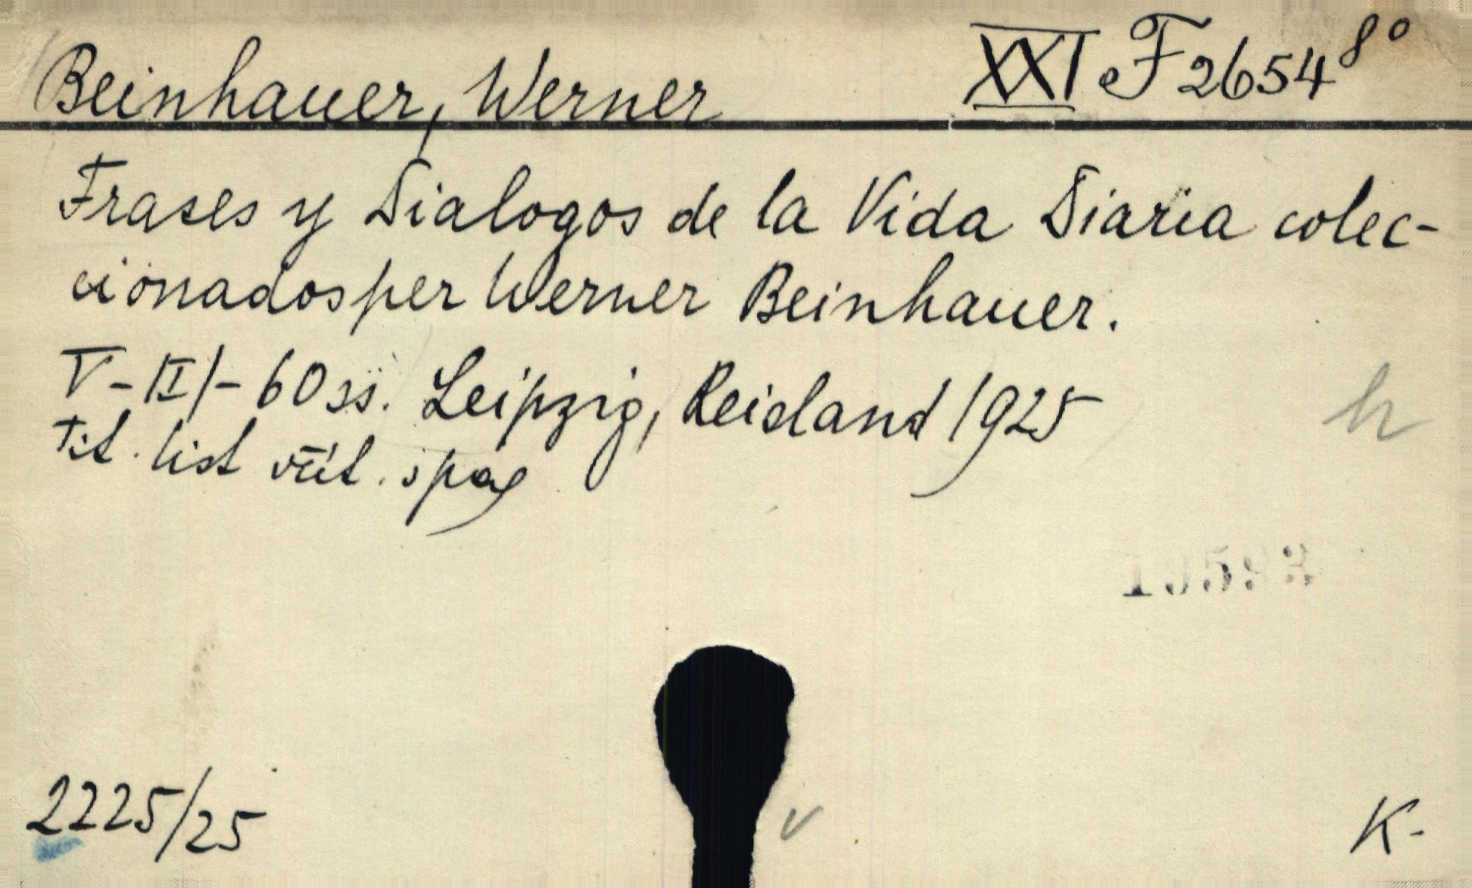 Beinhauer, Werner
XXI e F 2654 8°
Frases y Dialogos de la Vida Diaria colec-
cionados per Werner Beinhauer.
60 ss. Leipzig, Reisland 1925
Tit. list
h
2225/25
v
K-